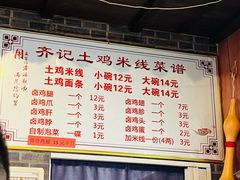 齐记土鸡米线菜谱
土鸡米线 小碗12元 大碗14元
土鸡面条 小碗12元 大碗14元
卤鸡腿 一个 12元 卤鸡翅 一个 3元
卤鸡爪 一个 3元 卤鸡胗 一个 3元
卤鸡肝 一个 3元 卤鸡头 一个 2元
卤鸡脖 一个 3元 卤鸡蛋 一个 2元
自制泡菜 一碟 1元 加米线一份(4两) 3元